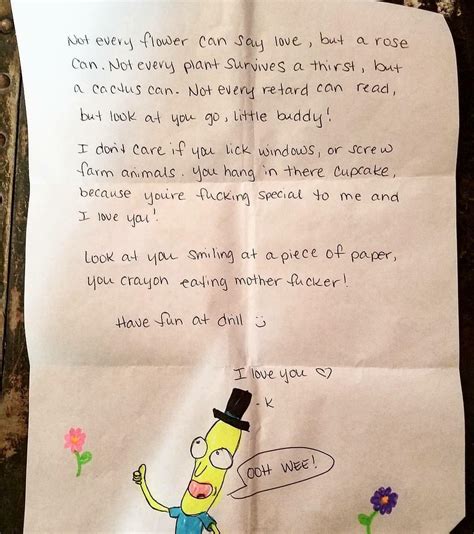 Not every flower can say love, but a rose
can. Not every plant survives a thirst, but
a cactus can. Not every retard can read,
but look at you go, little buddy!
I don't care if you lick windows, or screw
farm animals. You hang in there cupcake,
because you're fucking special to me and
I love you!
Look at you smiling at a piece of paper,
you crayon eating mother fucker!
Have fun at drill :)
I love you ♡
- K
OOH WEE!